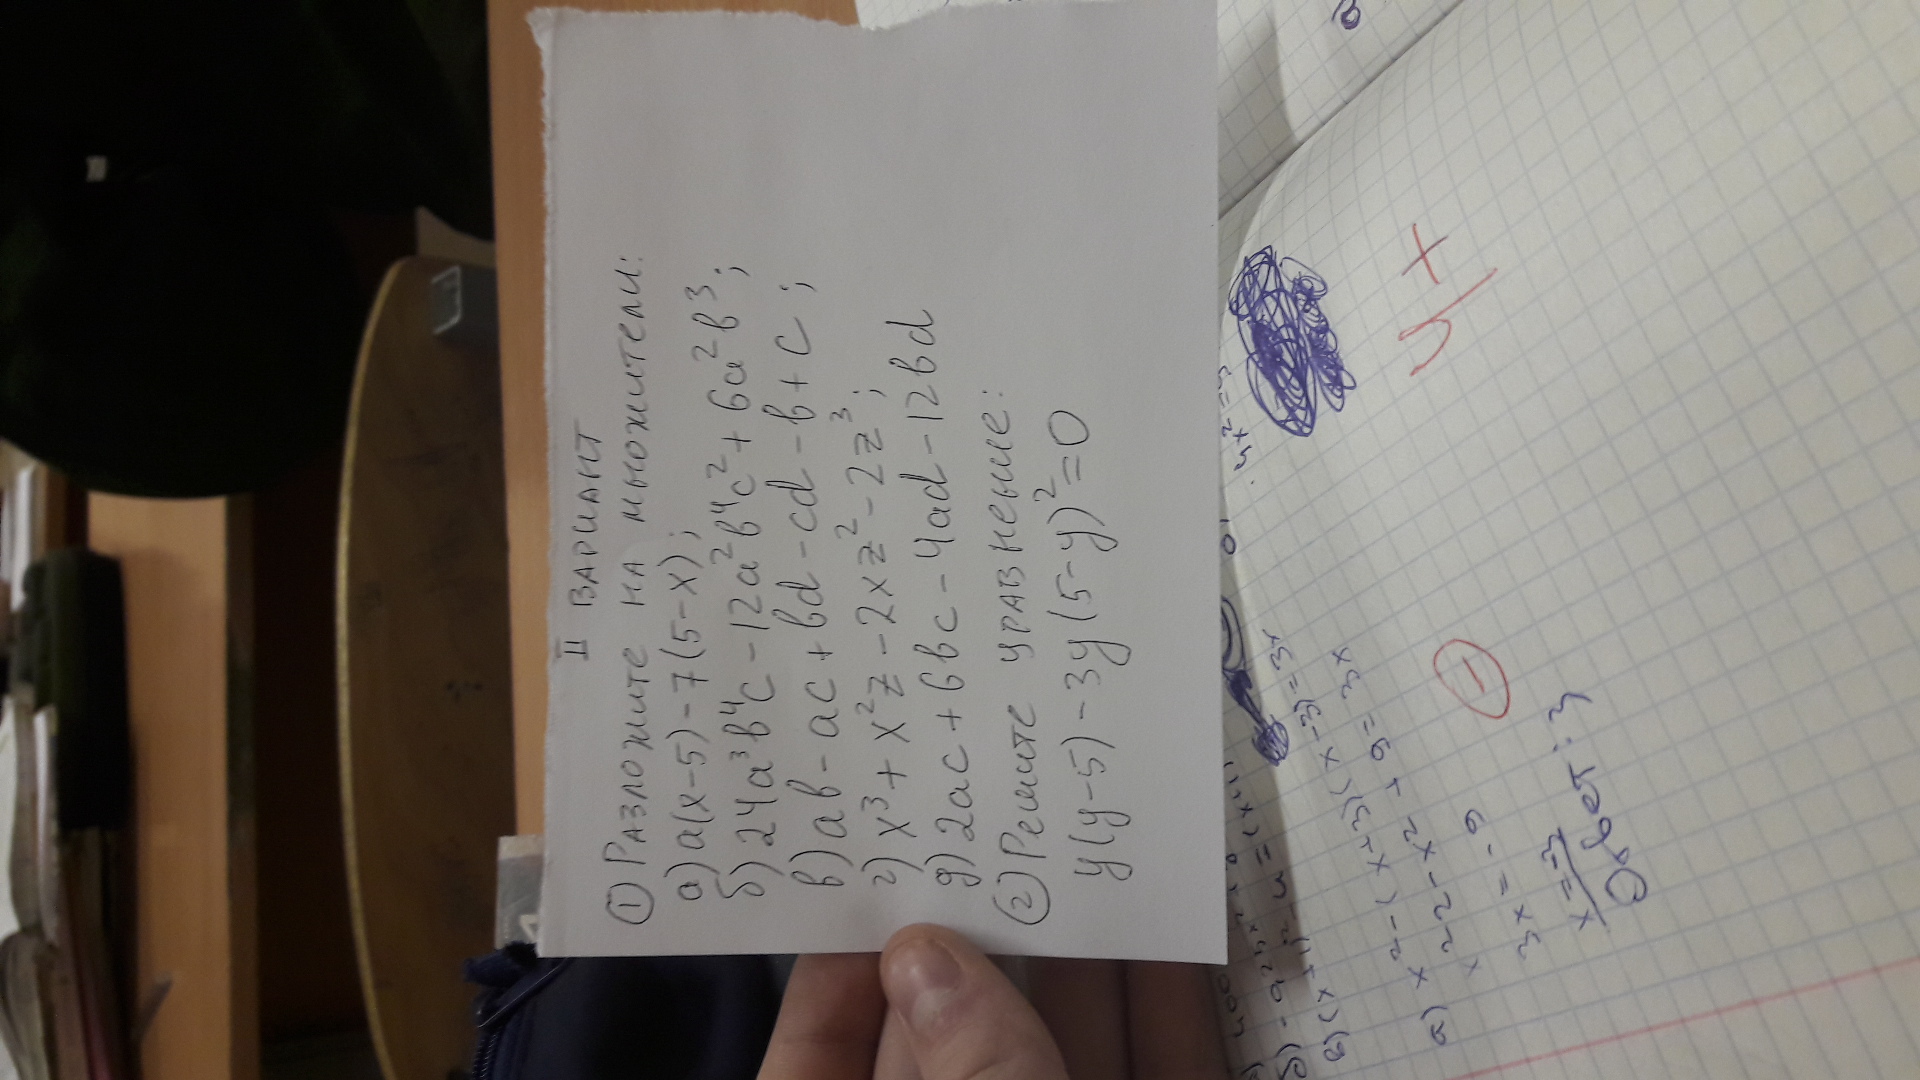 II ВАРИАНТ
① РАЗЛОЖИТЕ НА МНОЖИТЕЛИ:
а) a(x-5)-7(5-x);
б) 24a³b⁴c-12a²b⁴c²+6a²b³;
в) ab-ac+bd-cd-b+c;
г) x³+x²z-2xz²-2z³;
д) 2ac+6bc-4ad-12bd
② Решите уравнение:
y(y-5)-3y(5-y)²=0
а) x²-(x+3)(x-3)=3x
x²-x²+9=3x
3x=-9
x=-3
Ответ: 3